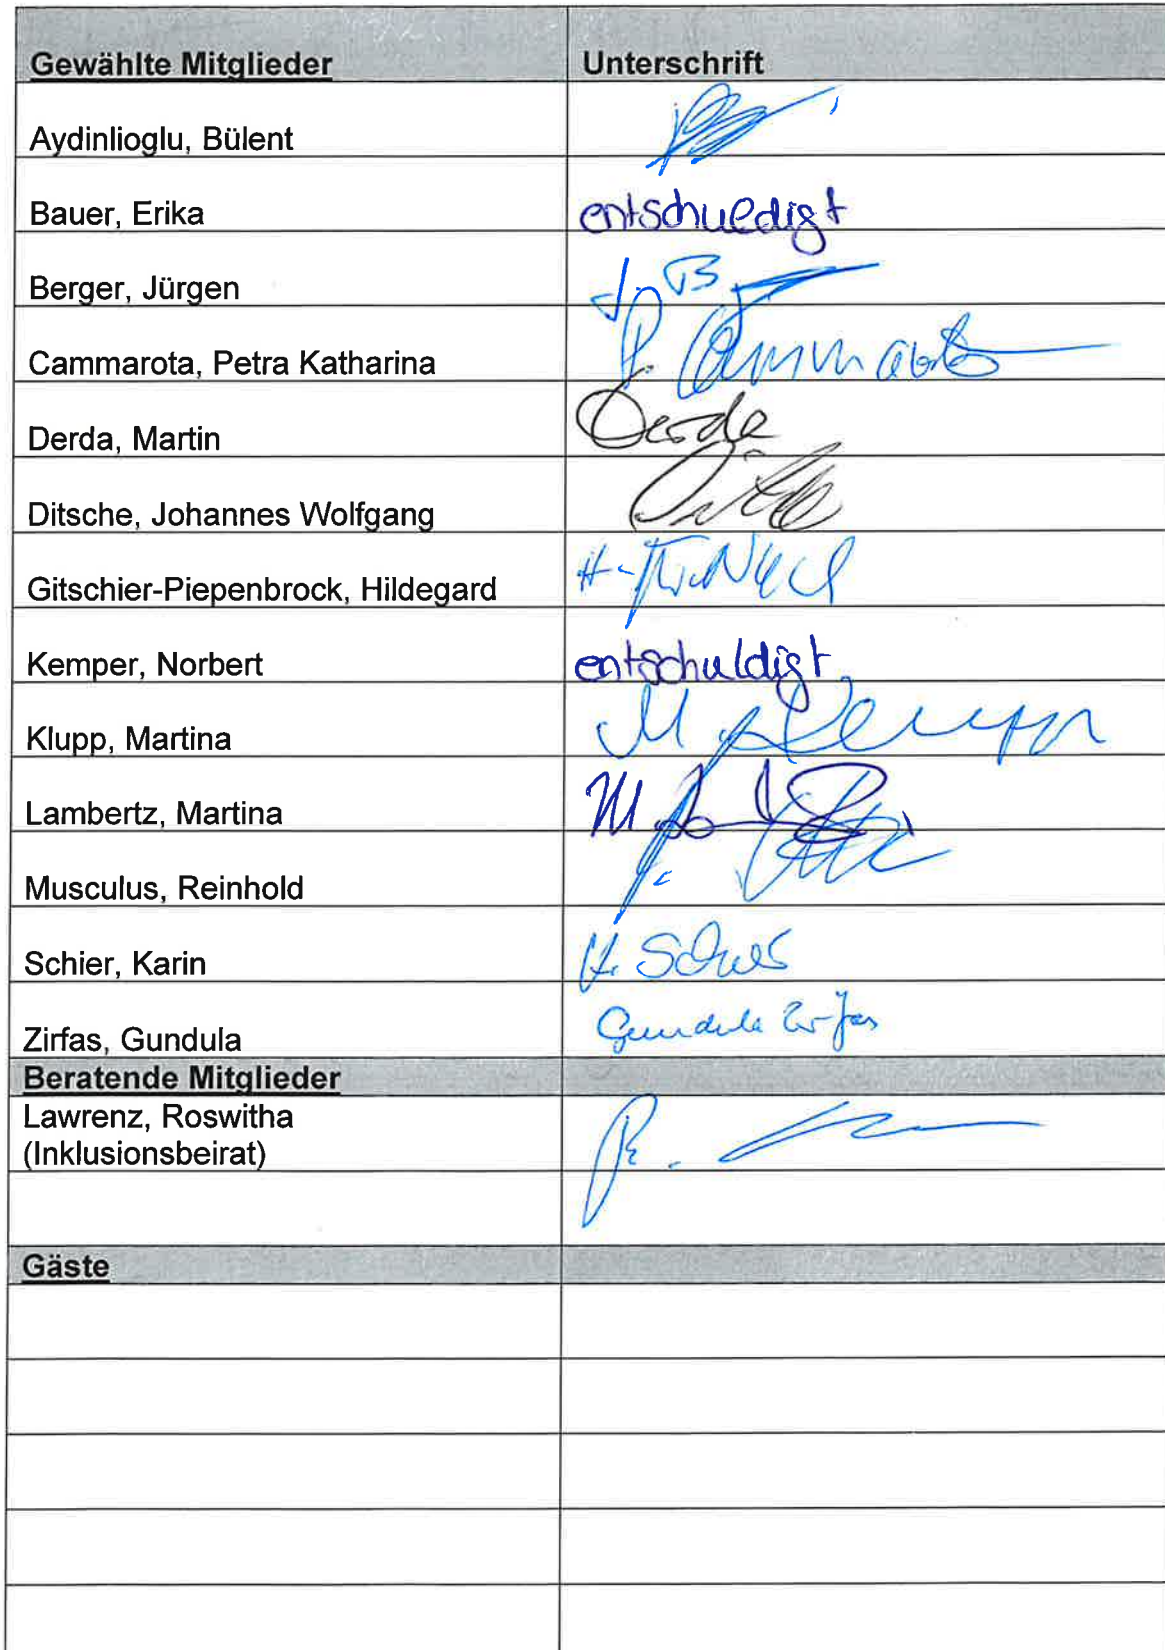 Gewählte Mitglieder Unterschrift
Aydinlioglu, Bülent
Bauer, Erika entschuldigt
Berger, Jürgen
Cammarota, Petra Katharina P. Cammarota
Derda, Martin Derda
Ditsche, Johannes Wolfgang
Gitschier-Piepenbrock, Hildegard
Kemper, Norbert entschuldigt
Klupp, Martina
Lambertz, Martina
Musculus, Reinhold
Schier, Karin K. Schier
Zirfas, Gundula Gundula Zirfas
Beratende Mitglieder
Lawrenz, Roswitha
(Inklusionsbeirat)
Gäste